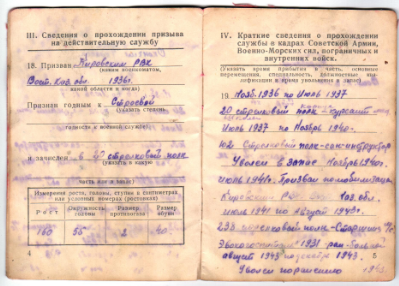 III. Сведения о прохождении призыва
на действительную службу
18. Призван Кировским РВК
(каким военкоматом,
Вост. Каз. обл. 1936г.
какой области и когда)
Признан годным к строевой
(указать степень
годности к военной службе)
и зачислен в стрелковый полк
(указать в какую
часть или в запас)
Измерения роста, головы, ступни в сантиметрах
или условных номерах (ростовках)
Рост
Окружность головы
Размер противогаза
Размер обуви
160
56
2
40
4
IV. Краткие сведения о прохождении
службы в кадрах Советской Армии,
Военно-Морских сил, пограничных и
внутренних войск.
(Указать время прибытия в часть, основные
перемещения, специальность, должностные
19. Нояб. 1936 по Июль 1937
20 стрелковый полк - курсант
Июль 1937 по Ноябрь 1940г.
102 стрелковый полк - сан-инструктор
Уволен в запас Ноябрь 1940г.
июль 1941г. Призван по мобилизации
Кировским РВК Каз. обл.
июль 1941 по Август 1943г.
233 стрелковый полк - Старшина
Эвакогоспиталь 1931 ран-больной
август 1943 1943 г.
Уволен по ранению